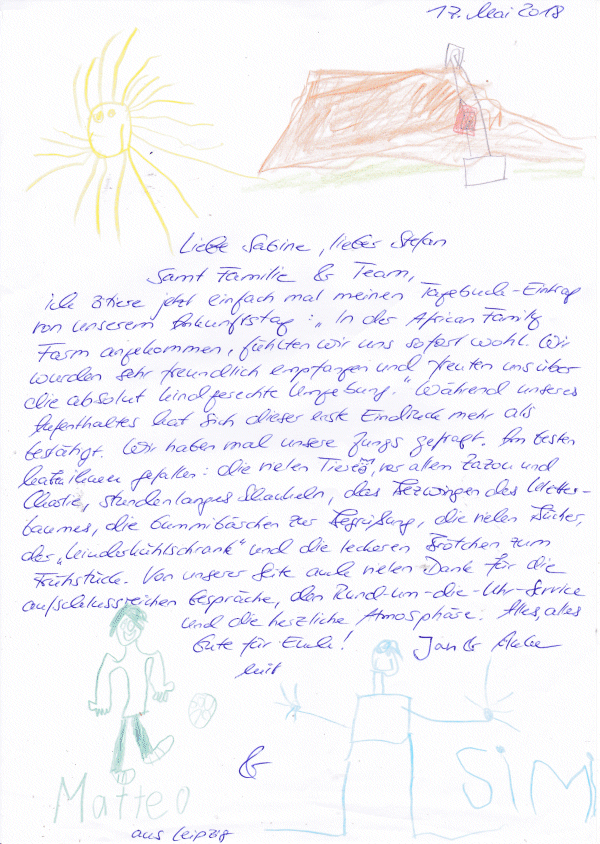 17. Mai 2018
Liebe Sabine, lieber Stefan
samt Familie & Team,
ich zitiere jetzt einfach mal meinen Tagebuch-Eintrag
von unserem Ankunftstag: „In der African Family
Farm angekommen, fühlten wir uns sofort wohl. Wir
wurden sehr freundlich empfangen und freuten uns über
die absolut kindgerechte Umgebung." Während unseres
Aufenthaltes hat sich dieser erste Eindruck mehr als
bestätigt. Wir haben mal unsere Jungs gefragt. Am besten
hat ihnen gefallen: die vielen Tiere, vor allem Zazou und
Charlie, stundenlanges Schaukeln, das Bezwingen des Kletter-
baumes, die Gummibärchen zur Begrüßung, die vielen Bücher,
der „Kinderkühlschrank" und die leckeren Brötchen zum
Frühstück. Von unserer Seite auch vielen Dank für die
aufschlussreichen Gespräche, den Rund-um-die-Uhr-Service
und die herzliche Atmosphäre. Alles, alles
Gute für Euch! Jan &
mit
Matteo
&
SiMi
aus Leipzig